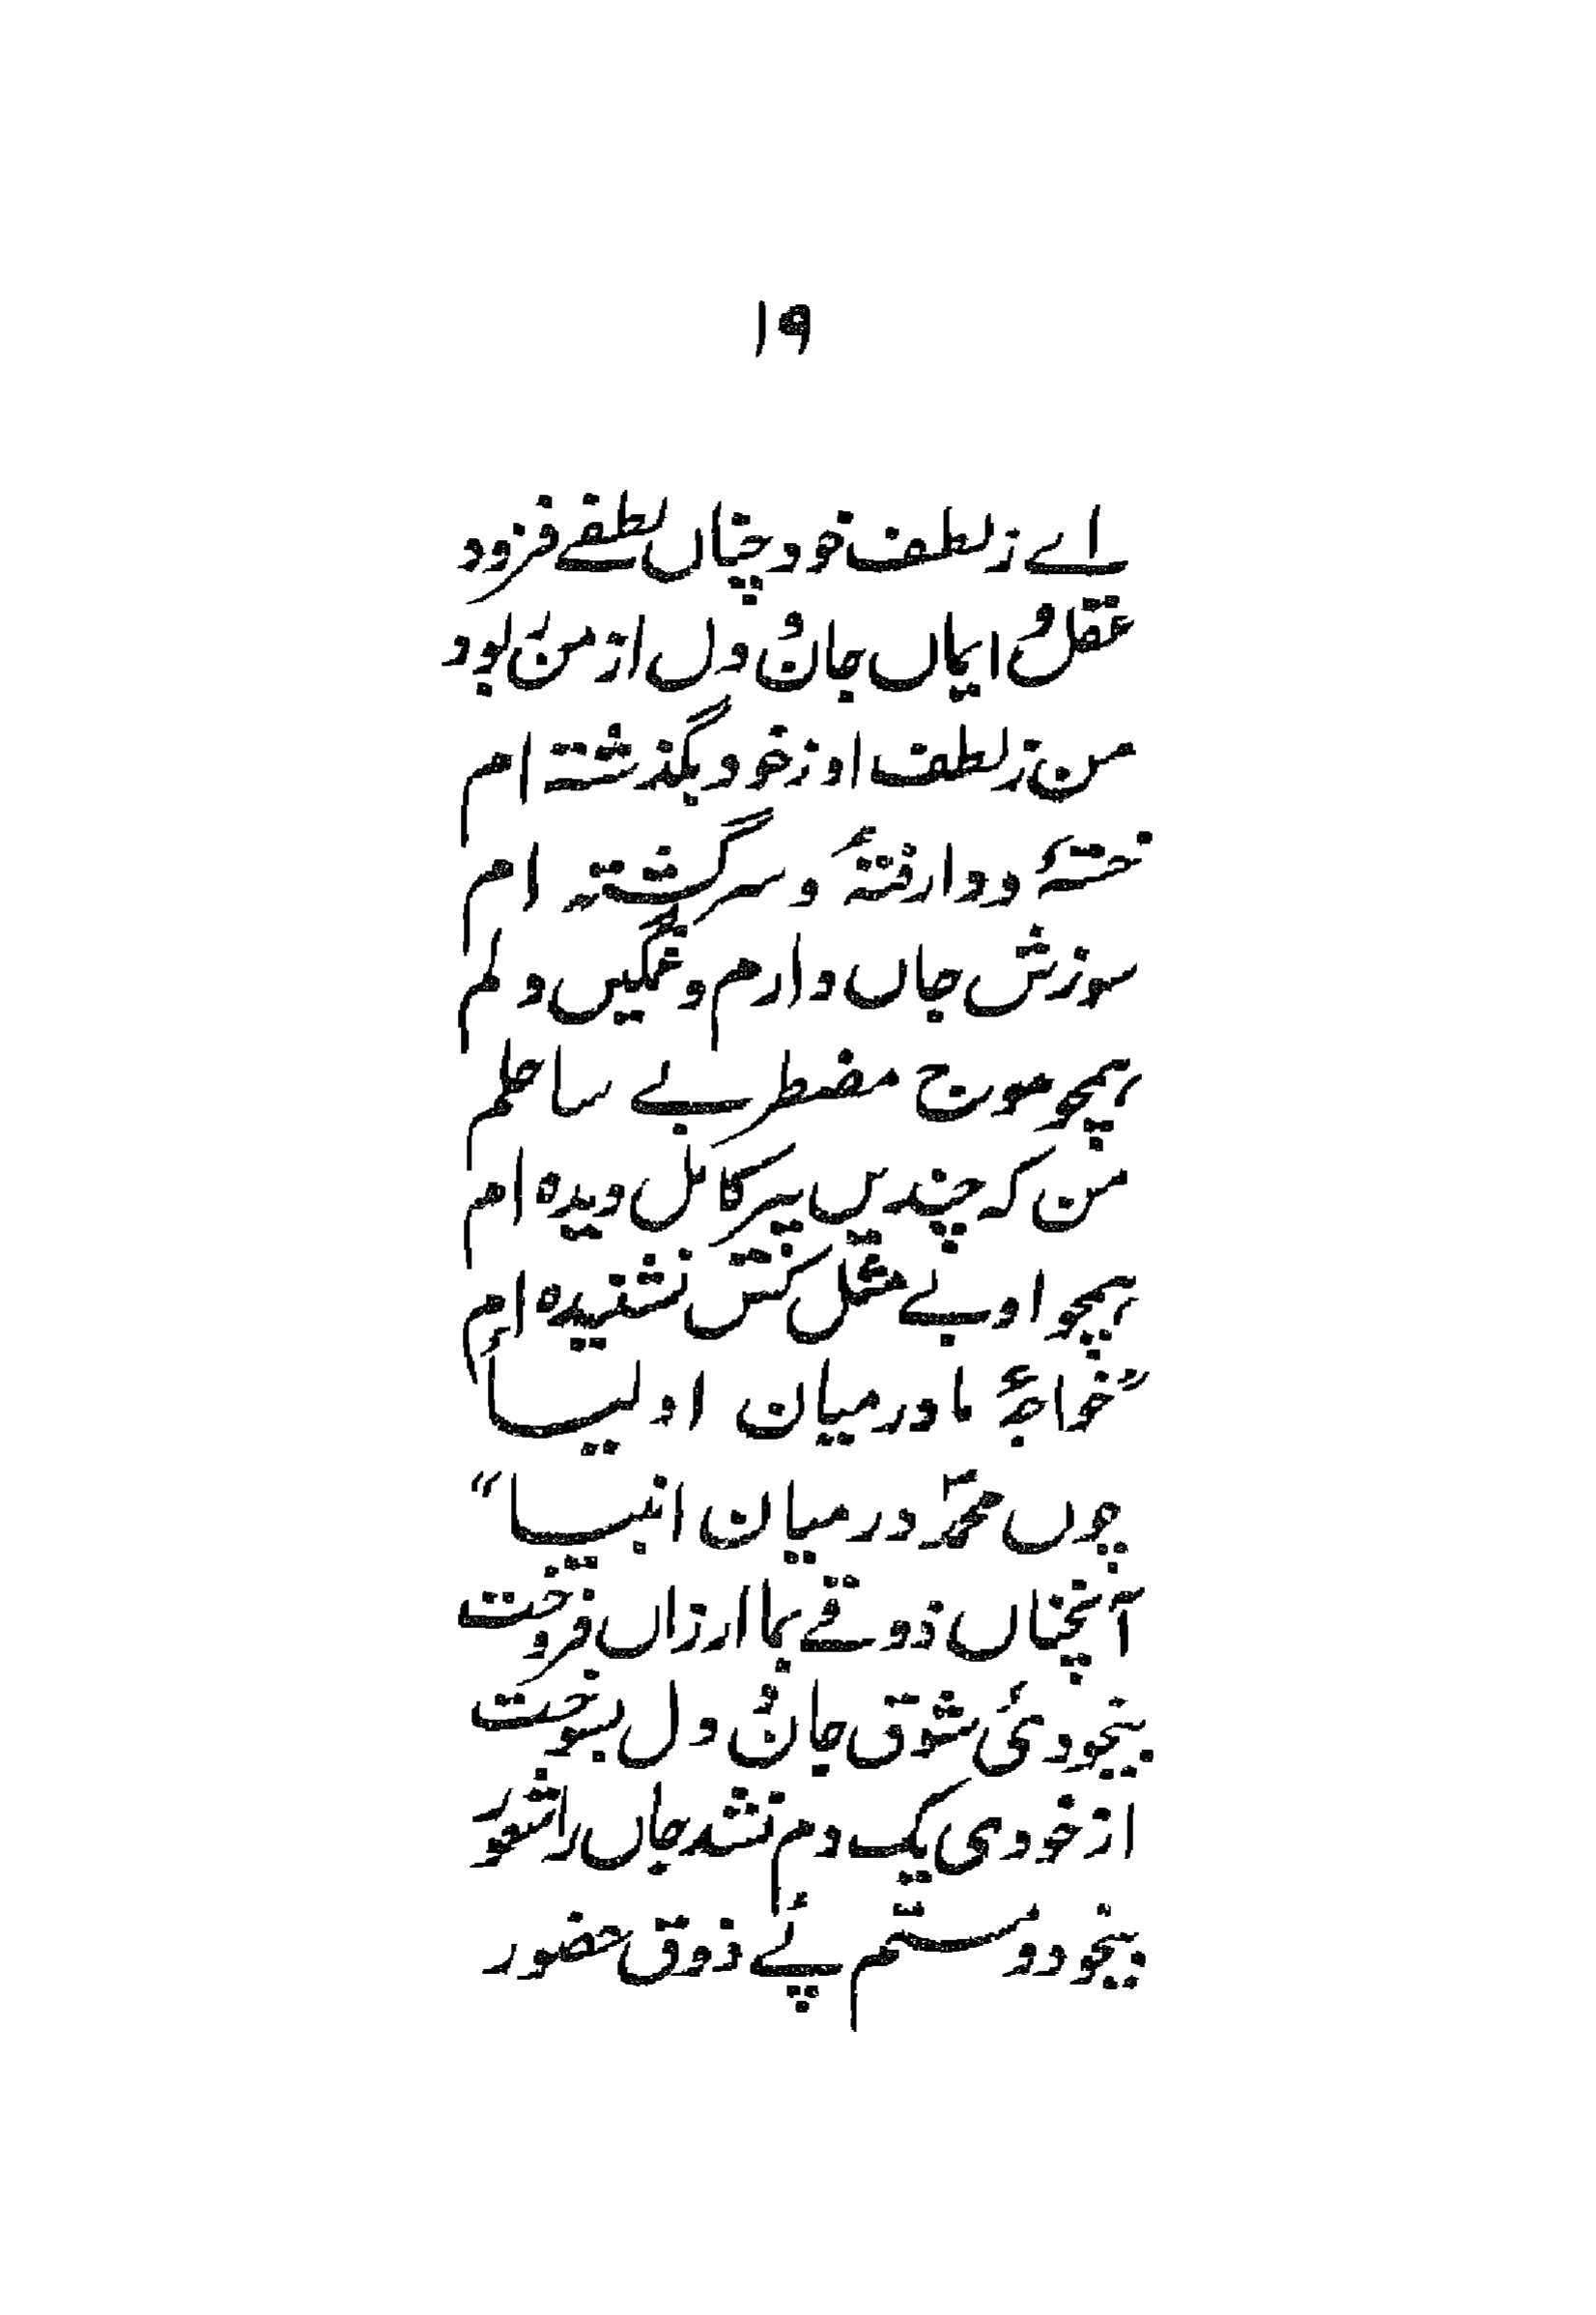 ۱۹
اے ز لطف خود چناں لطفے فزود
عقل و ایماں جان و دل از من ربود
من ز لطف او ز خود بگذشتہ ام
خستۂ و وارفتۂ و سرگشتہ ام
سوزش جاں دارم و غمگیں دلم
ہمچو موج مضطر بے ساحلم
من کہ چندیں پیر کامل دیدہ ام
ہمچو او بے مثل کس نشنیدہ ام
"خواجۂ ما درمیان اولیا
چوں محمدؐ درمیان انبیا"
آنچناں ذوقے بما ارزاں فروخت
بیخودیٔ شوق جان و دل بسوخت
از خودی یک دم نشد جاں را شعور
بیخود و مستم پئے ذوق حضور